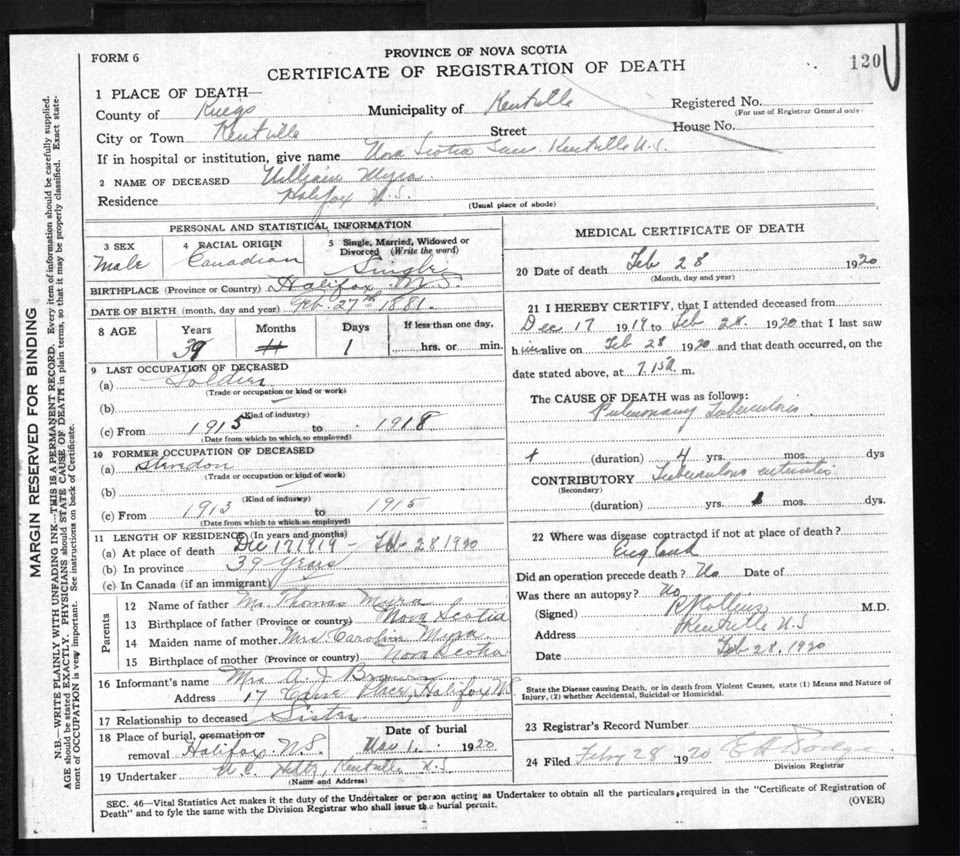 FORM 6
PROVINCE OF NOVA SCOTIA
120
CERTIFICATE OF REGISTRATION OF DEATH
1 PLACE OF DEATH—
County of Kings Municipality of Kentville Registered No.
(For use of Registrar General only)
City or Town Kentville Street House No.
If in hospital or institution, give name Nova Scotia San. Kentville N.S.
2 NAME OF DECEASED William Myra
Residence Halifax N.S.
(Usual place of abode)
PERSONAL AND STATISTICAL INFORMATION
3 SEX 4 RACIAL ORIGIN 5 Single, Married, Widowed or Divorced (Write the word)
Male Canadian Single
BIRTHPLACE (Province or Country) Halifax N.S.
DATE OF BIRTH (month, day and year) Feb. 27th 1881.
8 AGE Years Months Days If less than one day,
39 1 hrs. or min.
9 LAST OCCUPATION OF DECEASED
(a) Soldier
(Trade or occupation or kind or work)
(b)
(Kind of industry)
(c) From 1915 to 1918
(Date from which to which so employed)
10 FORMER OCCUPATION OF DECEASED
(a)
(Trade or occupation or kind of work)
(b)
(Kind of industry)
(c) From 1913 to 1915
(Date from which to which so employed)
11 LENGTH OF RESIDENCE (In years and months)
(a) At place of death Dec 17 1919 – Feb 28 1920
(b) In province 39 years
(c) In Canada (if an immigrant)
Parents
12 Name of father Mr. Thomas Myra
13 Birthplace of father (Province or country) Nova Scotia
14 Maiden name of mother Mrs Carolin Myra
15 Birthplace of mother (Province or country) Nova Scotia
16 Informant's name Mrs A. J. Brown
Address 17 Place, Halifax N.S.
17 Relationship to deceased Sister
18 Place of burial, cremation or removal Halifax N.S. Date of burial Mar 1. 1920
19 Undertaker Kentville N.S.
(Name and Address)
MEDICAL CERTIFICATE OF DEATH
20 Date of death Feb 28 1920
(Month, day and year)
21 I HEREBY CERTIFY, that I attended deceased from
Dec 17 1919 to Feb 28. 1920 that I last saw
him alive on Feb 28 1920 and that death occurred, on the
date stated above, at 7.15 m.
The CAUSE OF DEATH was as follows:
Pulmonary Tuberculosis
(duration) 4 yrs. mos. dys
CONTRIBUTORY Tuberculous enteritis
(Secondary)
(duration) yrs. mos. dys.
22 Where was disease contracted if not at place of death?
England
Did an operation precede death? No Date of
Was there an autopsy? No
(Signed) M.D.
Address Kentville N.S
Date Feb 28. 1920
State the Disease causing Death, or in death from Violent Causes, state (1) Means and Nature of
Injury, (2) whether Accidental, Suicidal or Homicidal.
23 Registrar's Record Number
24 Filed Feby 28 1920
Division Registrar
SEC. 46—Vital Statistics Act makes it the duty of the Undertaker or person acting as Undertaker to obtain all the particulars required in the "Certificate of Registration of
Death" and to fyle the same with the Division Registrar who shall issue the burial permit.
(OVER)
MARGIN RESERVED FOR BINDING
N.B.—WRITE PLAINLY WITH UNFADING INK—THIS IS A PERMANENT RECORD. Every item of information should be carefully supplied.
AGE should be stated EXACTLY. PHYSICIANS should STATE CAUSE OF DEATH in plain terms, so that it may be properly classified. Exact state-
ment of OCCUPATION is very important. See instructions on back of Certificate.